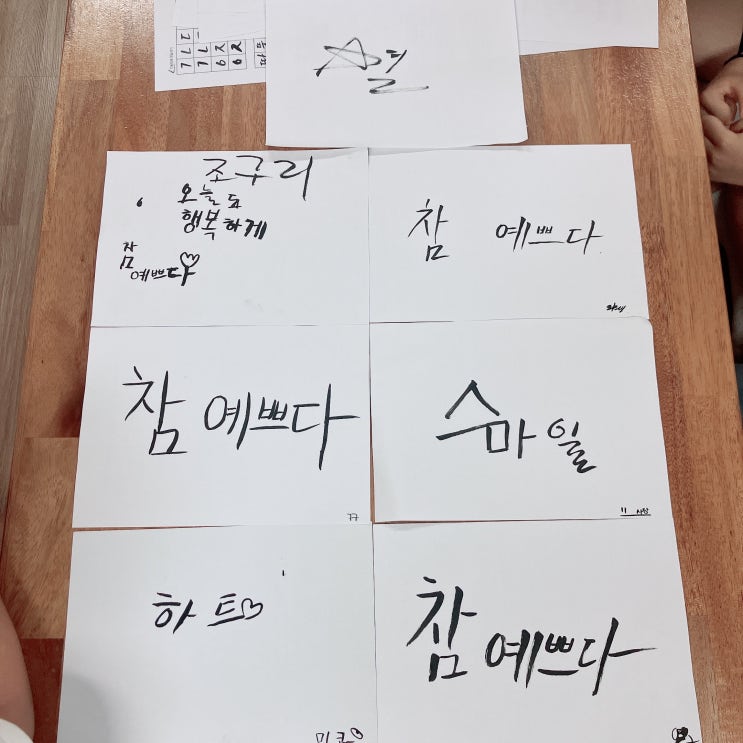 조구리
오늘도
행복하게
참
예쁘다
참 예쁘다
참 예쁘다
스마일
하트
참 예쁘다